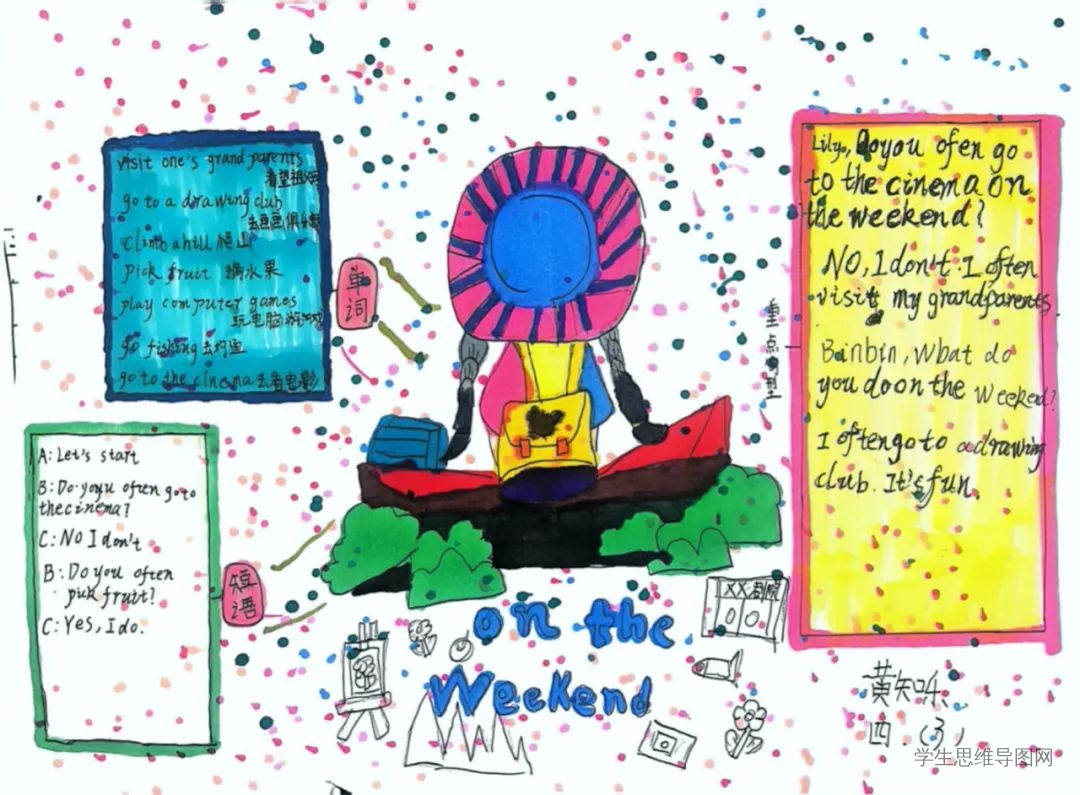 visit one's grandparents
看望祖父母
go to a drawing club
去画画俱乐部
climb a hill 爬山
pick fruit 摘水果
play computer games
玩电脑游戏
go fishing 去钓鱼
go to the cinema 去看电影
单词
A: Let's start
B: Do you often go to
the cinema?
C: NO I don't
B: Do you often
pick fruit?
C: Yes, I do.
短语
on the
Weekend
XX剧院
重点句型
Lily, Do you ofen go
to the cinema on
the weekend?
NO, I don't. I often
visit my grandparents.
Binbin, What do
you do on the weekend?
I often go to a drawing
club. It's fun.
四.(3)
学生思维导图网